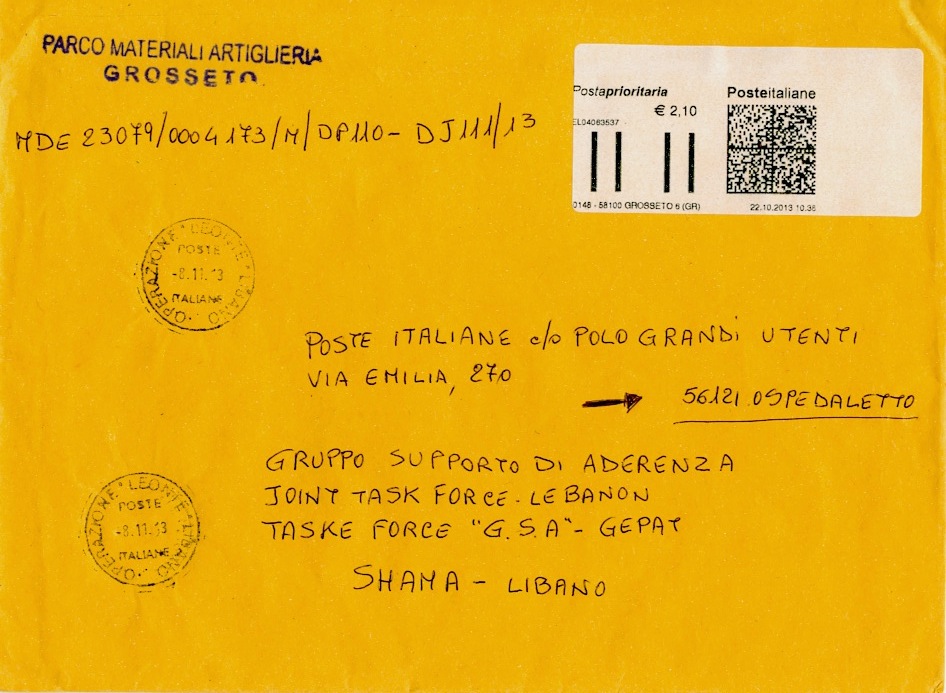 PARCO MATERIALI ARTIGLIERIA
GROSSETO
MDE 23079/0004173/M/DP110- DJ111/13
Postaprioritaria
Posteitaliane
€ 2,10
EL04083537
0148 - 58100 GROSSETO 6 (GR)
22.10.2013 10.36
OPERAZIONE * LEONTE * LIBANO
POSTE
-8.11.13
ITALIANE
POSTE ITALIANE c/o POLO GRANDI UTENTI
VIA EMILIA, 270
56121.OSPEDALETTO
GRUPPO SUPPORTO DI ADERENZA
JOINT TASK FORCE-LEBANON
TASKE FORCE "G.S.A"- GEPAT
OPERAZIONE * LEONTE * LIBANO
POSTE
-8.11.13
ITALIANE
SHAMA - LIBANO